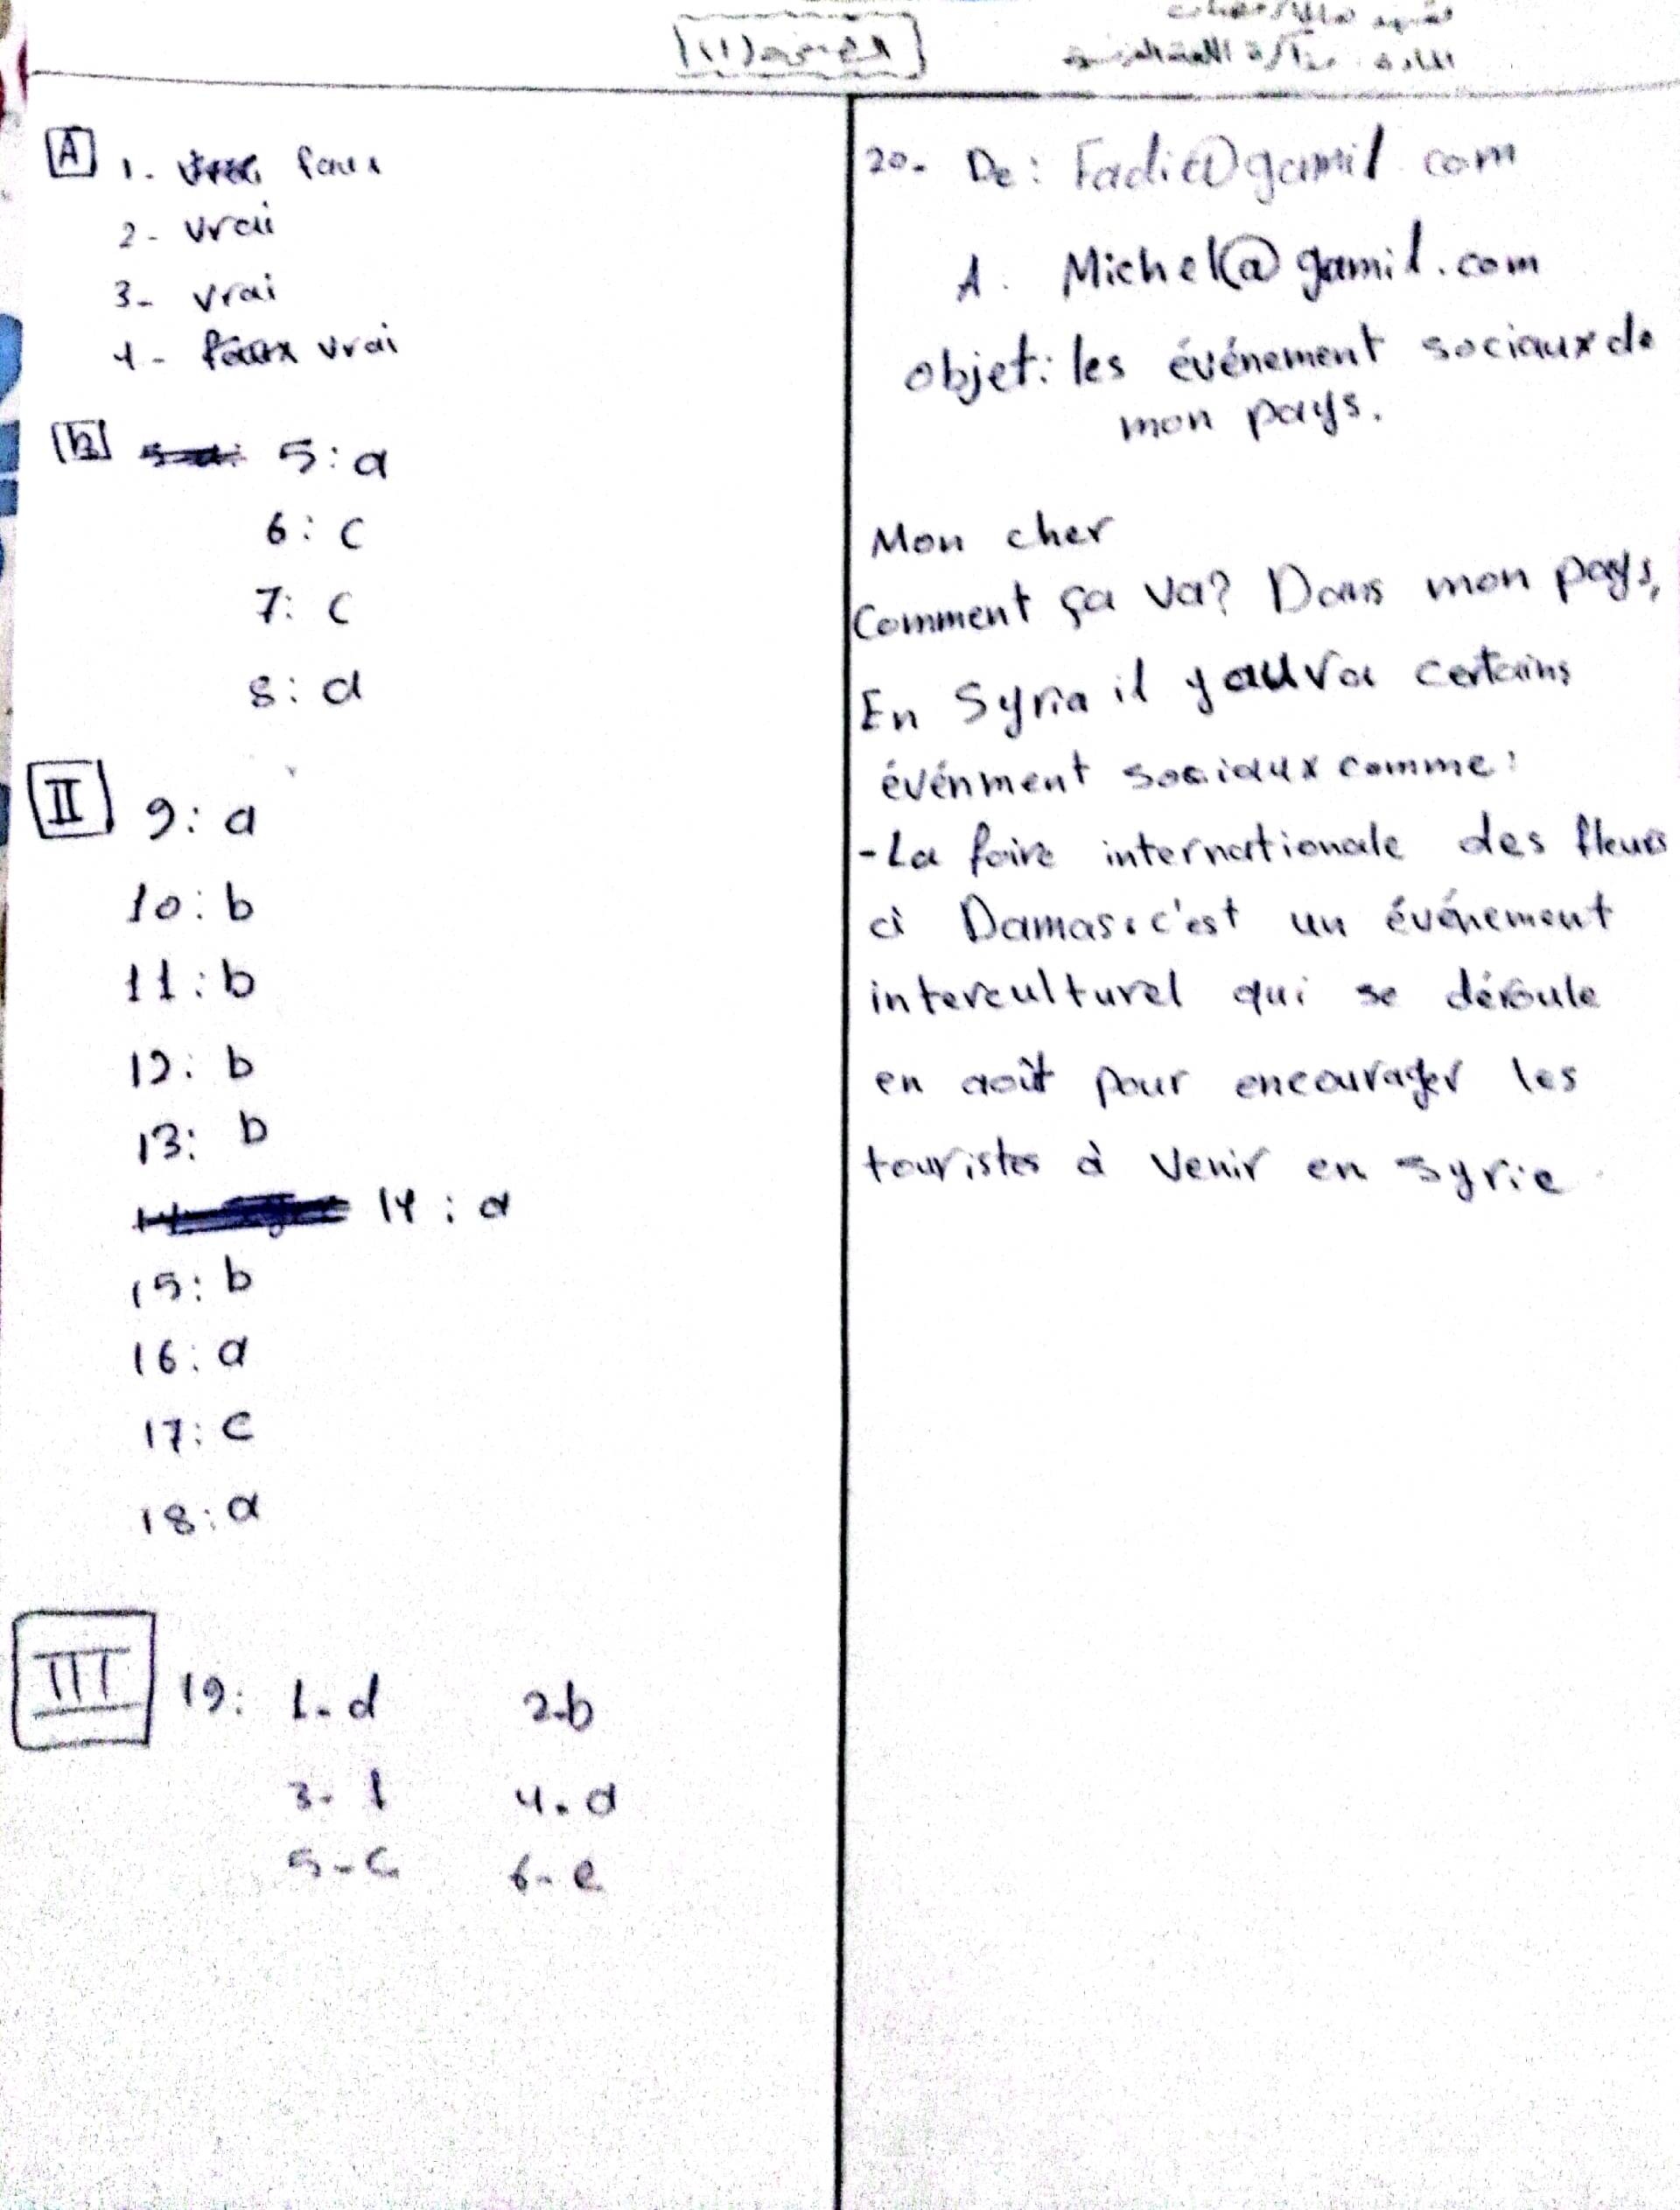 A 1. faux
2- vrai
3- vrai
4- faux vrai
b 5: a
6: c
7: c
8: d
II 9: a
10: b
11: b
12: b
13: b
14: a
15: b
16: a
17: c
18: a
III 19: 1-d 2-b
3- f 4. d
5-c 6-e
20- De: Fadi@gamil.com
A. Michel@gamil.com
objet: les événement sociaux de
mon pays.
Mon cher
Comment ça va? Dans mon pays,
En Syria il y aura certains
événment sociaux comme:
-La foire internationale des fleurs
à Damas. c'est un événement
interculturel qui se déroule
en août pour encourager les
touristes à venir en Syrie